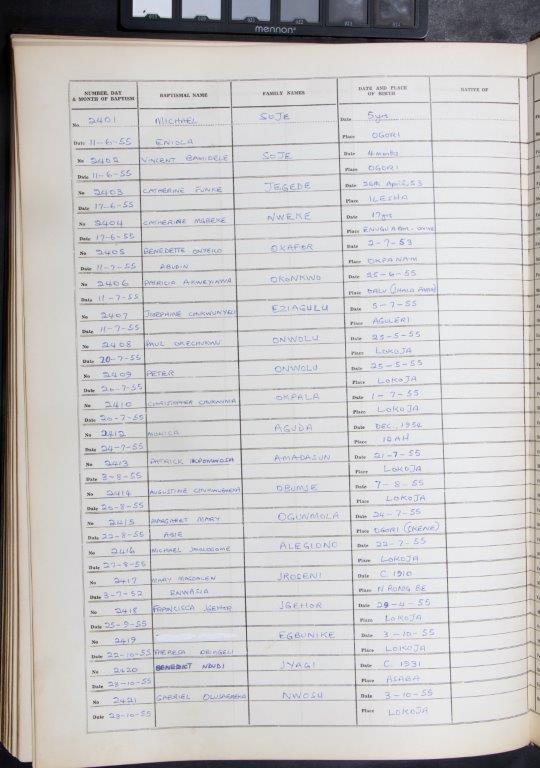 mennon
NUMBER, DAY & MONTH OF BAPTISM BAPTISMAL NAME FAMILY NAMES DATE AND PLACE OF BIRTH NATIVE OF
No 2401 MICHAEL SOJE Date 5yrs
Date 11-6-55 ENIOLA Place OGORI
No 2402 VINCENT BAMIDELE SOJE Date 4 months
Date 11-6-55 Place OGORI
No 2403 CATHERINE FUNKE JEGEDE Date 26th April, 53
Date 17-6-55 Place ILESHA
No 2404 CATHERINE MGBEKE NWEKE Date 17yrs
Date 17-6-55 Place ENUGU
No 2405 BENEDETTE ONYEKO OKAFOR Date 2-7-53
Date 11-7-55 ABUDIN Place OKPANAM
No 2406 PATRICIA AKWEYINWA OKONKWO Date 25-6-55
Date 11-7-55 Place
No 2407 JOSEPHINE CHUKWUNYELU EZIAGULU Date 5-7-55
Date 11-7-55 Place AGULERI
No 2408 PAUL OKECHUKWU ONWOLU Date 25-5-55
Date 20-7-55 Place LOKOJA
No 2409 PETER ONWOLU Date 25-5-55
Date 20-7-55 Place LOKOJA
No 2410 CHRISTOPHER CHUKWUMA OKPALA Date 1-7-55
Date 20-7-55 Place LOKOJA
No 2412 MONICA AGUDA Date DEC, 1954
Date 24-7-55 Place IDAH
No 2413 PATRICK IKPOMWOSA AMADASUN Date 21-7-55
Date 3-8-55 Place LOKOJA
No 2414 AUGUSTINE CHUKWUEMEKA OBUMSE Date 7-8-55
Date 20-8-55 Place LOKOJA
No 2415 MARGARET MARY OGUNMOLA Date 24-7-55
Date 22-8-55 ABIE Place OGORI (OKENE)
No 2416 MICHAEL ALEGIONO Date 22-7-55
Date 27-8-55 Place LOKOJA
No 2417 MARY MAGDALEN JROSENI Date C. 1910
Date 3-7-52 ENWASIA Place
No 2418 FRANCISCA JGEHOR JGEHOR Date 29-4-55
Date 25-9-55 Place LOKOJA
No 2419 EGBUNIKE Date 3-10-55
Date 22-10-55 THERESA OBIAGELI Place LOKOJA
No 2420 BENEDICT NDUDI JYAGI Date C. 1931
Date 28-10-55 Place ASABA
No 2421 GABRIEL NWOSU Date 3-10-55
Date 29-10-55 Place LOKOJA